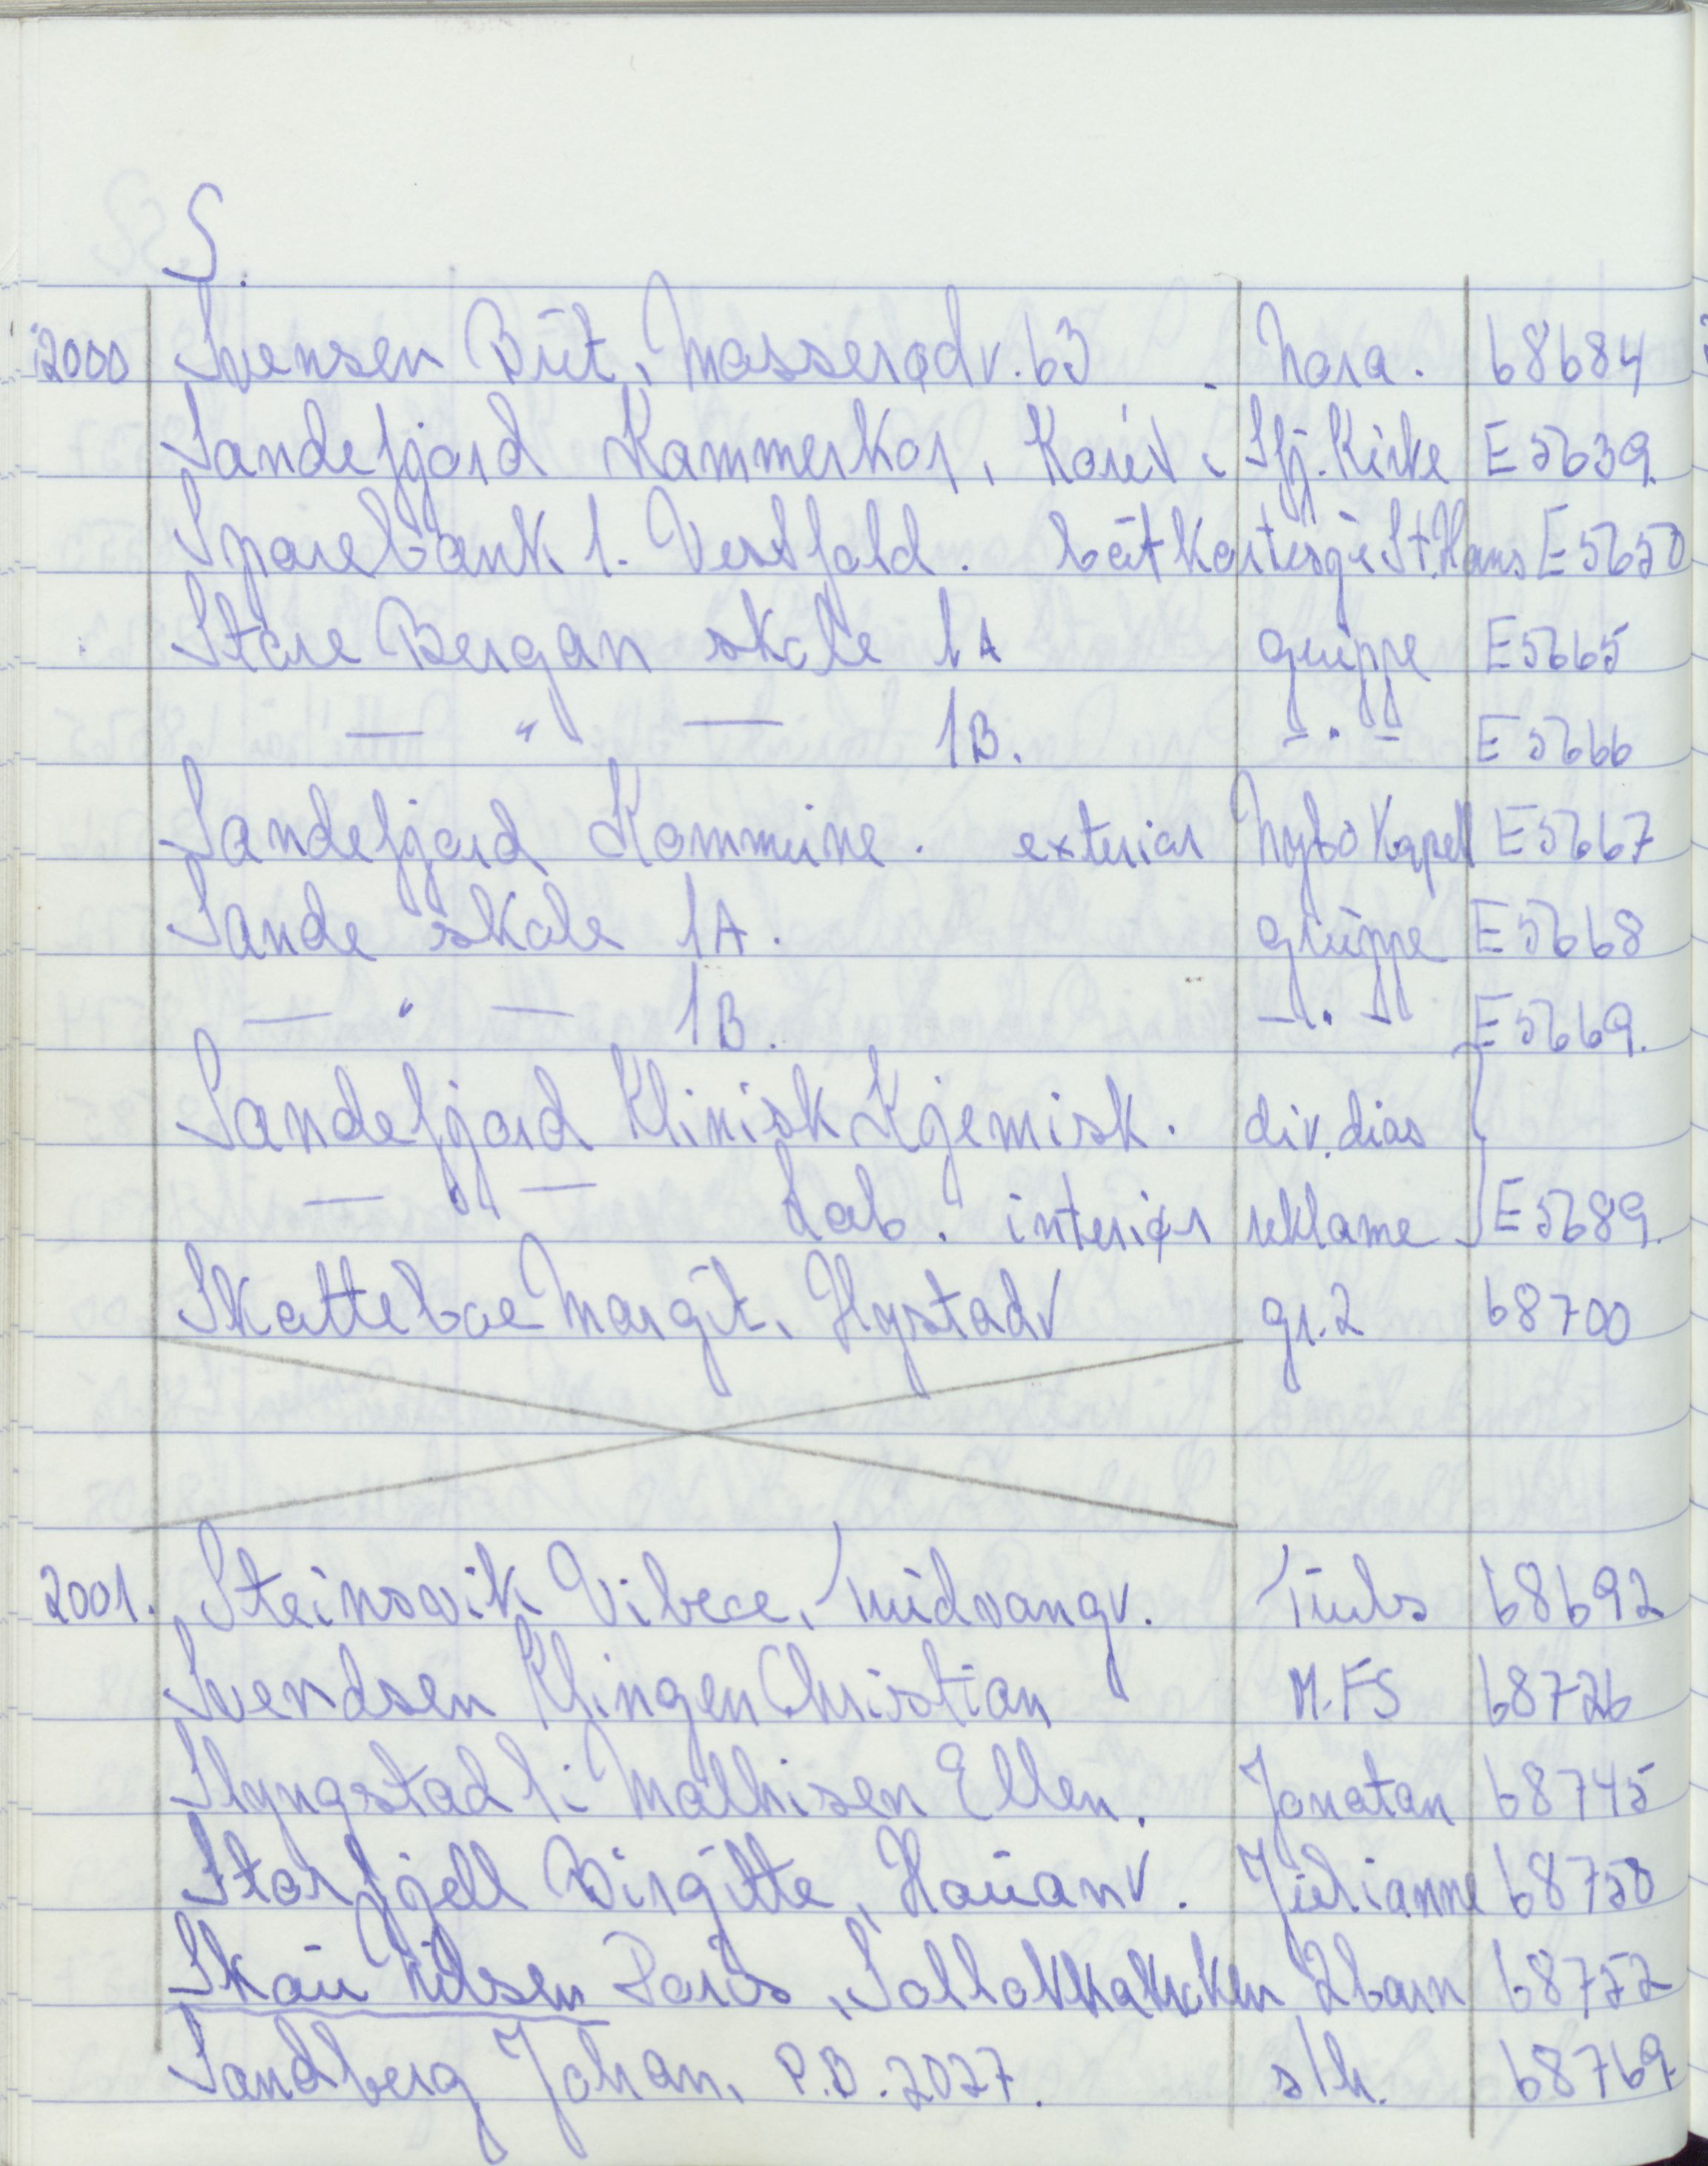 S.
2000 Svensen Brit, Mosserødv. 63 . Nora. 68684
Sandefjord Kammerkor, Koret i Sfj. Kirke E5639.
Sparebank 1. Vestfold. båtkortesje St.Hans E5650
Store Bergan skole 1A gruppe E5665
— " — 1B. — " — E5666
Sandefjord Kommune. exteriør Nybo Kapell E5667
Sande skole 1A. gruppe E5668
— " — 1B. — " — E5669.
Sandefjord Klinisk Kjemisk. div. dias
— " — Lab. interiør reklame E5689.
Skatteboe Margit, Hystadv gr.2 68700
2001. Steinsvik Vibece, Midvangv. Truls 68692
Svendsen Klingen Christian M.FS 68726
Slyngstad /: Mathisen Ellen. Jonatan 68745
Storfjell Birgitte, Hauanv. Julianne 68750
Skau Nilsen Doris, 2barn 68752
Sandberg Johan, P.B. 2027. s/h. 68769